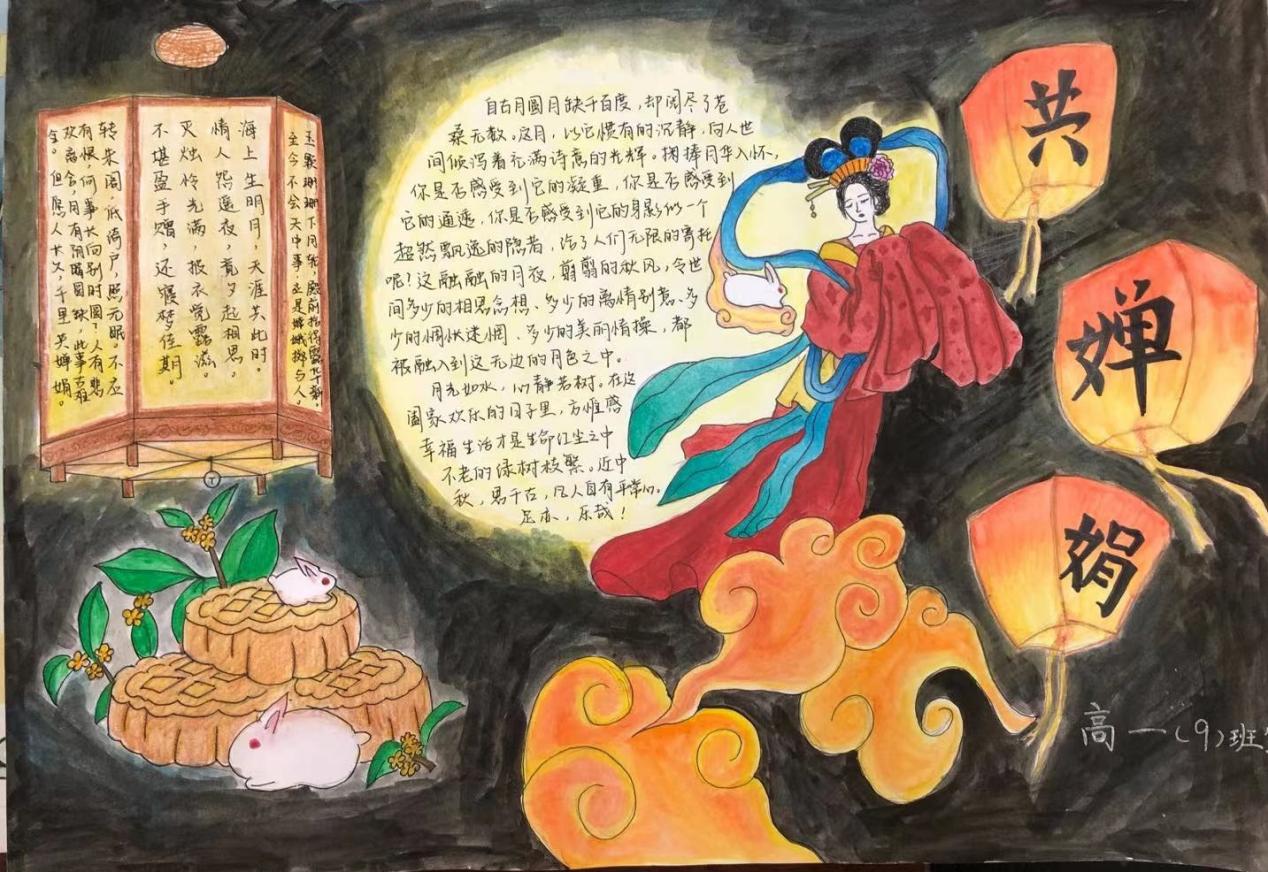 玉颗珊珊下月轮，殿前拾得露华新。
至今不会天中事，应是嫦娥掷与人。
海上生明月，天涯共此时。
情人怨遥夜，竟夕起相思。
灭烛怜光满，披衣觉露滋。
不堪盈手赠，还寝梦佳期。
转朱阁，低绮户，照无眠。不应
有恨，何事长向别时圆？人有悲
欢离合，月有阴晴圆缺，此事古难
全。但愿人长久，千里共婵娟。
自古月圆月缺千百度，却阅尽了苍
桑无数。这月，以它惯有的沉静，向人世
间倾泻着充满诗意的光辉。掬捧月华入怀，
你是否感受到它的凝重，你是否感受到
它的通透，你是否感受到它的身影似一个
超然飘逸的隐者，给了人们无限的寄托
呢！这融融的月夜，翦翦的秋风，令世
间多少的相思念想、多少的离情别意、多
少的惆怅迷惘、多少的美丽情操，都
被融入到这无边的月色之中。
月光如水，心静若树。在这
阖家欢乐的日子里，方惟感
幸福生活才是生命红尘之中
不老的绿树枝繁。近中
秋，思千古，凡人自有平常心。
足亦，乐哉！
共
婵
娟
高一（9）班